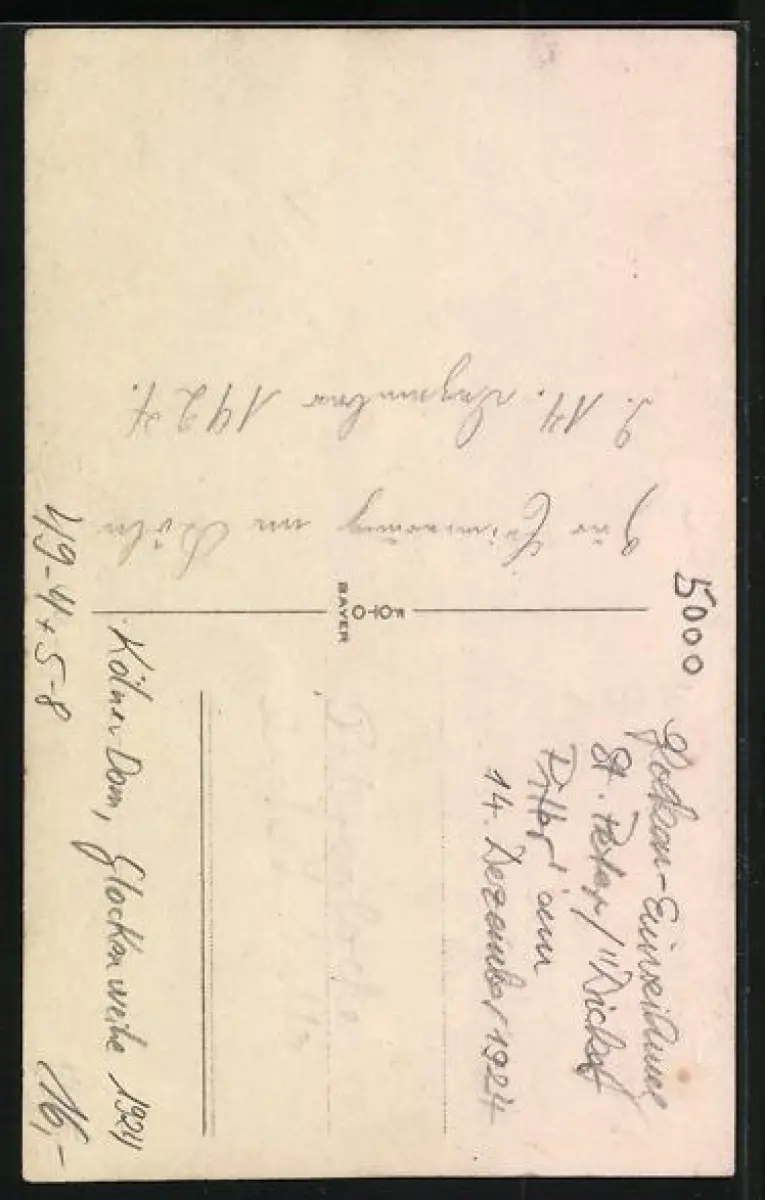 Zur Erinnerung an Köln
d. 14. Dezember 1924.
BAYER
5000
Glocken-Einweihung
St. Peter / "Dicker
Pitter" am
14. Dezember 1924
Petersglocke
Kölner Dom, Glockenweihe 1924
49-4+5-8
16,-